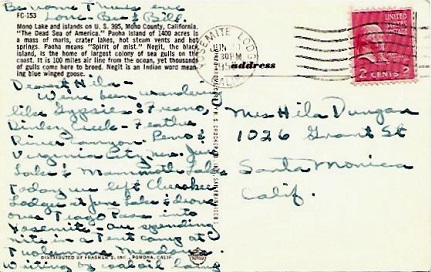 Be home Thurs eve
Love - Bea & Bill
FC-153
Mono Lake and islands on U. S. 395, Mono County, California.
"The Dead Sea of America." Paoha Island of 1400 acres is
a mass of marls, crater lakes, hot steam vents and hot
springs. Paoha means "Spirit of mist." Negit, the black
island, is the home of largest colony of sea gulls on the
coast. It is 100 miles air line from the ocean, yet thousands
of gulls come here to breed. Negit is an Indian word mean-
ing blue winged goose.
Dearest Hila -
We've been wandering
like Gypsies to Fresno,
Dinkey Creek - Feather
River Canyon - Reno &
Virginia City, Nev. June
Lake & Mammoth Lake
Today we left Cherokee
Lodge at June Lake & drove
over Tioga Pass into
Yosemite - are spending
nite in a tent camp at
Tuolumne Meadows
Writing by coal oil lamp
DISTRIBUTED BY FRASHER'S INC. POMONA, CALIF.
YOSEMITE LODGE
JUN
30 PM
address
UNITED STATES
POSTAGE
2 CENTS 2
Miss Hila Dungan
1026 Grant St
Santa Monica
Calif.